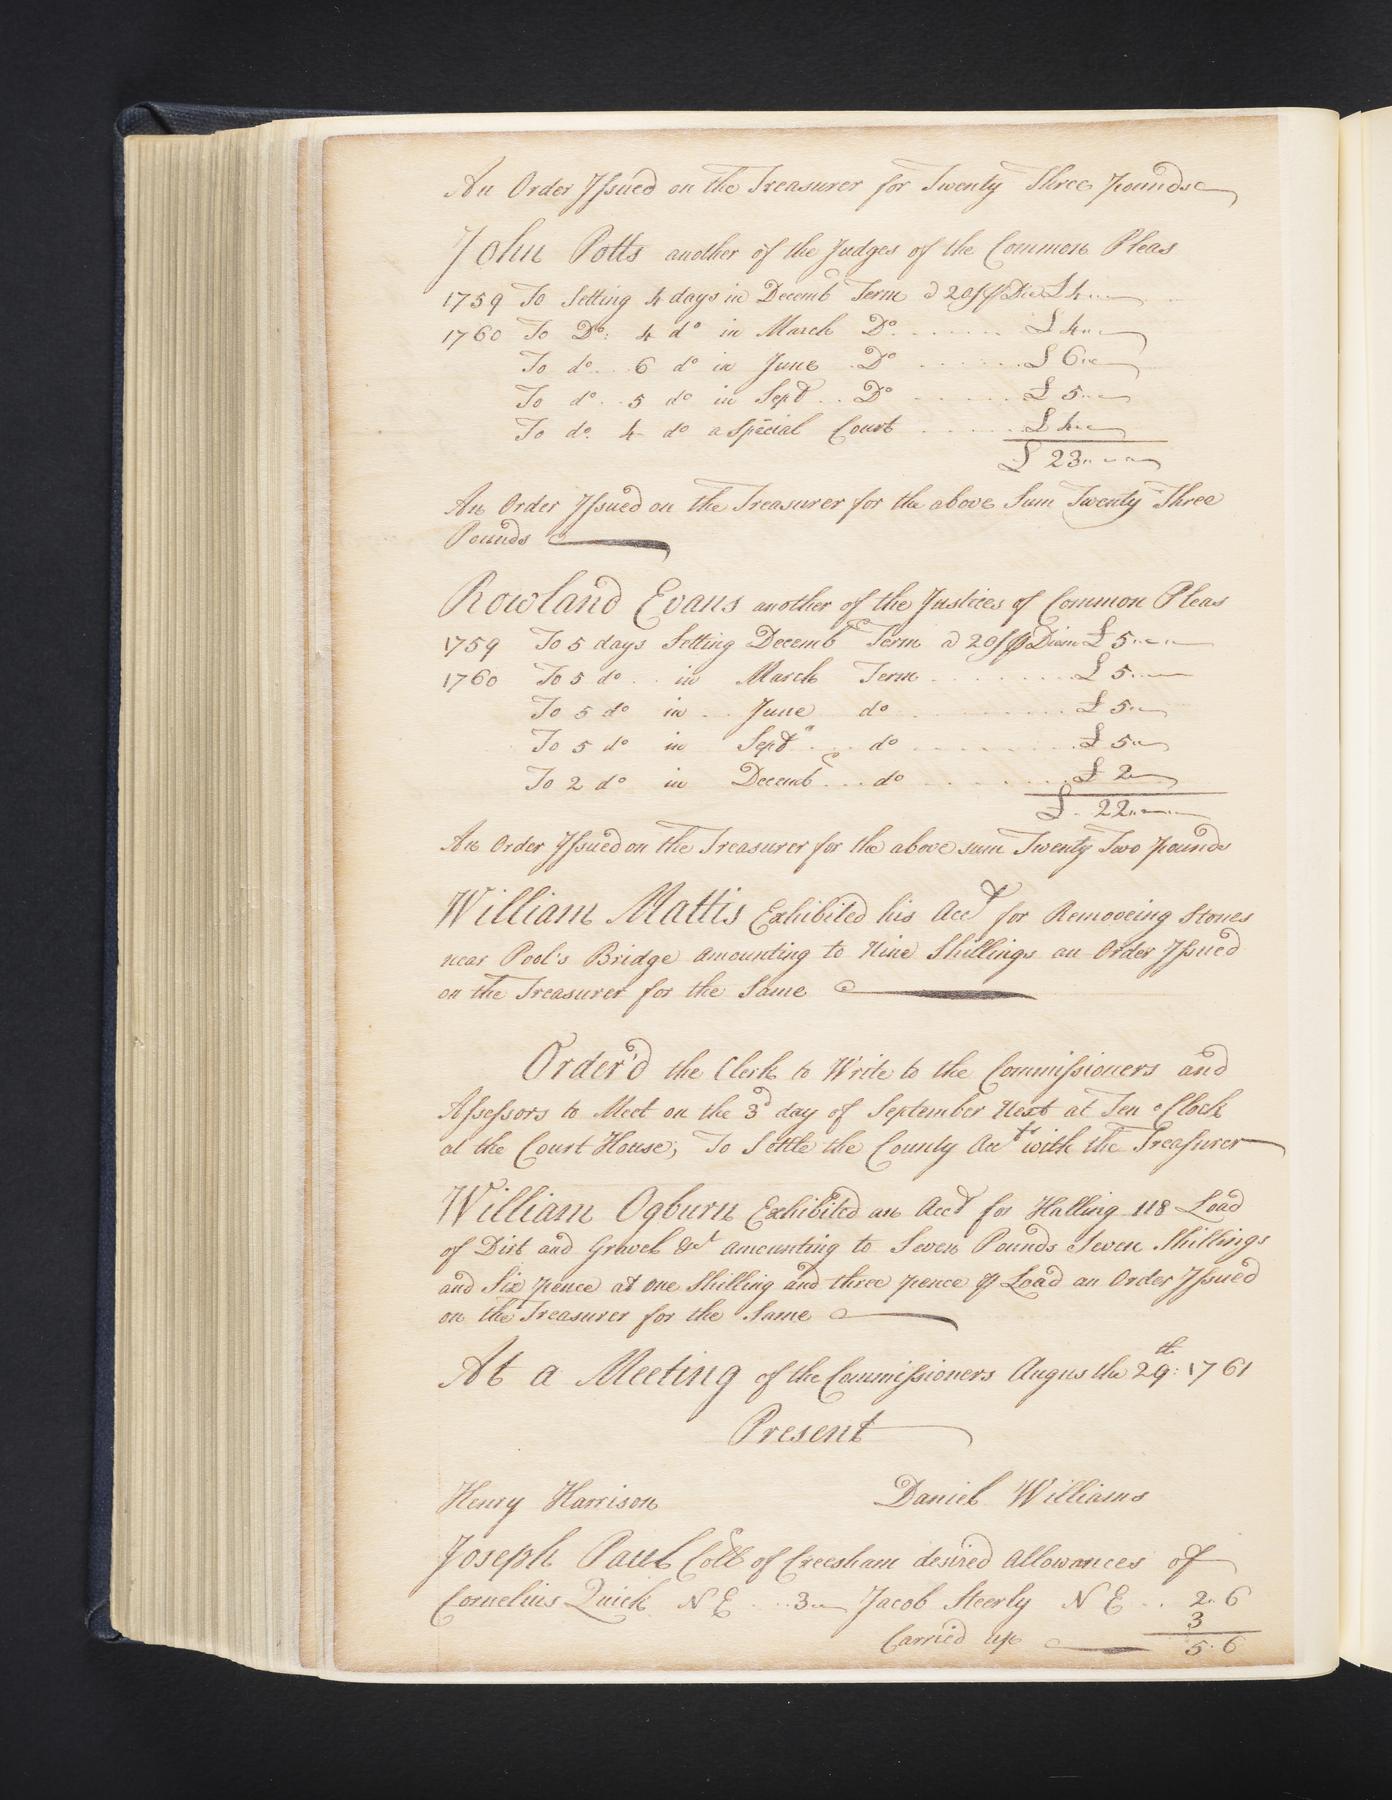 An Order Issued on the Treasurer for Twenty Three pounds
John Potts another of the Judges of the Common Pleas
1759 To Setting 4 days in Decemb^r Term @ 20s/ ⅌ Diem £ 4
1760 To D^o: 4 d^o in March D^o. £ 4
To d^o 6 d^o in June D^o £ 6
To d^o 5 d^o in Sept^r D^o £ 5
To do. 4 do a Special Court £ 4
£ 23
An Order Issued on the Treasurer for the above Sum Twenty Three
Pounds
Rowland Evans another of the Justices of Common Pleas
1759 To 5 days Setting Decemb^r Term @ 20s/ ⅌ Diem £ 5
1760 To 5 d^o in March Term £ 5
To 5 d^o in June d^o £ 5
To 5 d^o in Sept^r d^o £ 5
To 2 d^o in Decemb^r do £ 2
£ 22
An Order Issued on the Treasurer for the above sum Twenty Two pounds
William Mattis Exhibited his Acc^t for Removeing Stones
near Pool's Bridge amounting to Nine Shillings an Order Issued
on the Treasurer for the Same
Order'd the Clerk to Write to the Commissioners and
Assessors to Meet on the 3^d day of September Next at Ten oClock
at the Court House; To Settle the County Acc^ts with the Treasurer
William Ogburn Exhibited an Acc^t for Halling 118 Load
of Dirt and Gravel &c^t amounting to Seven Pounds Seven Shillings
and Six pence at one Shilling and three pence ⅌ Load an Order Issued
on the Treasurer for the Same
At a Meeting of the Commissioners Augus the 29^th: 1761
Present
Henry Harrison Daniel Williams
Joseph Paul Coll^r of Creesham desired Allowances of
Cornelius Quick N E 3 Jacob Steerly N E 2 6
3
Carried up 5 6